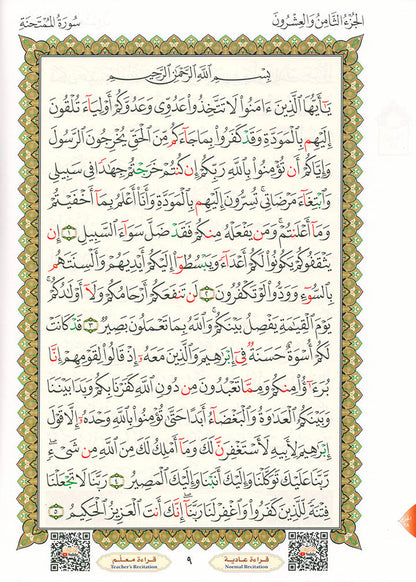 الجزء الثامن والعشرون
سورة الممتحنة
بِسْمِ ٱللَّهِ ٱلرَّحْمَٰنِ ٱلرَّحِيمِ
يَٰٓأَيُّهَا ٱلَّذِينَ ءَامَنُوا۟ لَا تَتَّخِذُوا۟ عَدُوِّى وَعَدُوَّكُمْ أَوْلِيَآءَ تُلْقُونَ
إِلَيْهِم بِٱلْمَوَدَّةِ وَقَدْ كَفَرُوا۟ بِمَا جَآءَكُم مِّنَ ٱلْحَقِّ يُخْرِجُونَ ٱلرَّسُولَ
وَإِيَّاكُمْ أَن تُؤْمِنُوا۟ بِٱللَّهِ رَبِّكُمْ إِن كُنتُمْ خَرَجْتُمْ جِهَٰدًا فِى سَبِيلِى
وَٱبْتِغَآءَ مَرْضَاتِى تُسِرُّونَ إِلَيْهِم بِٱلْمَوَدَّةِ وَأَنَا۠ أَعْلَمُ بِمَآ أَخْفَيْتُمْ
وَمَآ أَعْلَنتُمْ وَمَن يَفْعَلْهُ مِنكُمْ فَقَدْ ضَلَّ سَوَآءَ ٱلسَّبِيلِ ١ إِن
يَثْقَفُوكُمْ يَكُونُوا۟ لَكُمْ أَعْدَآءً وَيَبْسُطُوٓا۟ إِلَيْكُمْ أَيْدِيَهُمْ وَأَلْسِنَتَهُم
بِٱلسُّوٓءِ وَوَدُّوا۟ لَوْ تَكْفُرُونَ ٢ لَن تَنفَعَكُمْ أَرْحَامُكُمْ وَلَآ أَوْلَٰدُكُمْ
يَوْمَ ٱلْقِيَٰمَةِ يَفْصِلُ بَيْنَكُمْ وَٱللَّهُ بِمَا تَعْمَلُونَ بَصِيرٌ ٣ قَدْ كَانَتْ
لَكُمْ أُسْوَةٌ حَسَنَةٌ فِىٓ إِبْرَٰهِيمَ وَٱلَّذِينَ مَعَهُۥٓ إِذْ قَالُوا۟ لِقَوْمِهِمْ إِنَّا
بُرَءَٰٓؤُا۟ مِنكُمْ وَمِمَّا تَعْبُدُونَ مِن دُونِ ٱللَّهِ كَفَرْنَا بِكُمْ وَبَدَا بَيْنَنَا
وَبَيْنَكُمُ ٱلْعَدَٰوَةُ وَٱلْبَغْضَآءُ أَبَدًا حَتَّىٰ تُؤْمِنُوا۟ بِٱللَّهِ وَحْدَهُۥٓ إِلَّا قَوْلَ
إِبْرَٰهِيمَ لِأَبِيهِ لَأَسْتَغْفِرَنَّ لَكَ وَمَآ أَمْلِكُ لَكَ مِنَ ٱللَّهِ مِن شَىْءٍ
رَّبَّنَا عَلَيْكَ تَوَكَّلْنَا وَإِلَيْكَ أَنَبْنَا وَإِلَيْكَ ٱلْمَصِيرُ ٤ رَبَّنَا لَا تَجْعَلْنَا
فِتْنَةً لِّلَّذِينَ كَفَرُوا۟ وَٱغْفِرْ لَنَا رَبَّنَآ إِنَّكَ أَنتَ ٱلْعَزِيزُ ٱلْحَكِيمُ ٥
قراءة عادية
Normal Recitation
٩
قراءة معلم
Teacher's Recitation